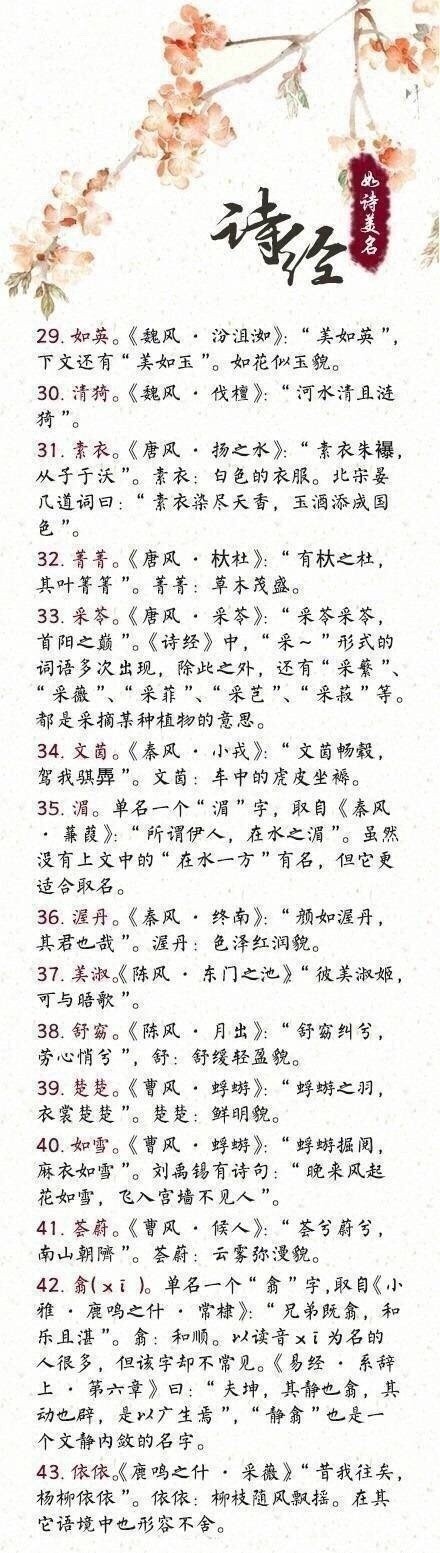 诗经
如诗美名
29. 如英。《魏风 · 汾沮洳》：“美如英”，
下文还有“美如玉”。如花似玉貌。
30. 清猗。《魏风 · 伐檀》：“河水清且涟
猗”。
31. 素衣。《唐风 · 扬之水》：“素衣朱襮，
从子于沃”。素衣：白色的衣服。北宋晏
几道词曰：“素衣染尽天香，玉酒添成国
色”。
32. 菁菁。《唐风 · 杕杜》：“有杕之杜，
其叶菁菁”。菁菁：草木茂盛。
33. 采苓。《唐风 · 采苓》：“采苓采苓，
首阳之巅”。《诗经》中，“采～”形式的
词语多次出现，除此之外，还有“采蘩”、
“采薇”、“采菲”、“采芑”、“采菽”等。
都是采摘某种植物的意思。
34. 文茵。《秦风 · 小戎》：“文茵畅毂，
驾我骐馵”。文茵：车中的虎皮坐褥。
35. 湄。单名一个“湄”字，取自《秦风
· 蒹葭》：“所谓伊人，在水之湄”。虽然
没有上文中的“在水一方”有名，但它更
适合取名。
36. 渥丹。《秦风 · 终南》：“颜如渥丹，
其君也哉”。渥丹：色泽红润貌。
37. 美淑。《陈风 · 东门之池》“彼美淑姬，
可与晤歌”。
38. 舒窈。《陈风 · 月出》：“舒窈纠兮，
劳心悄兮”，舒：舒缓轻盈貌。
39. 楚楚。《曹风 · 蜉蝣》：“蜉蝣之羽，
衣裳楚楚”。楚楚：鲜明貌。
40. 如雪。《曹风 · 蜉蝣》：“蜉蝣掘阅，
麻衣如雪”。刘禹锡有诗句：“晚来风起
花如雪，飞入宫墙不见人”。
41. 荟蔚。《曹风 · 候人》：“荟兮蔚兮，
南山朝隮”。荟蔚：云雾弥漫貌。
42. 翕(xī)。单名一个“翕”字，取自《小
雅 · 鹿鸣之什 · 常棣》：“兄弟既翕，和
乐且湛”。翕：和顺。以读音xī为名的
人很多，但该字却不常见。《易经 · 系辞
上 · 第六章》曰：“夫坤，其静也翕，其
动也辟，是以广生焉”，“静翕”也是一
个文静内敛的名字。
43. 依依。《鹿鸣之什 · 采薇》“昔我往矣，
杨柳依依”。依依：柳枝随风飘摇。在其
它语境中也形容不舍。